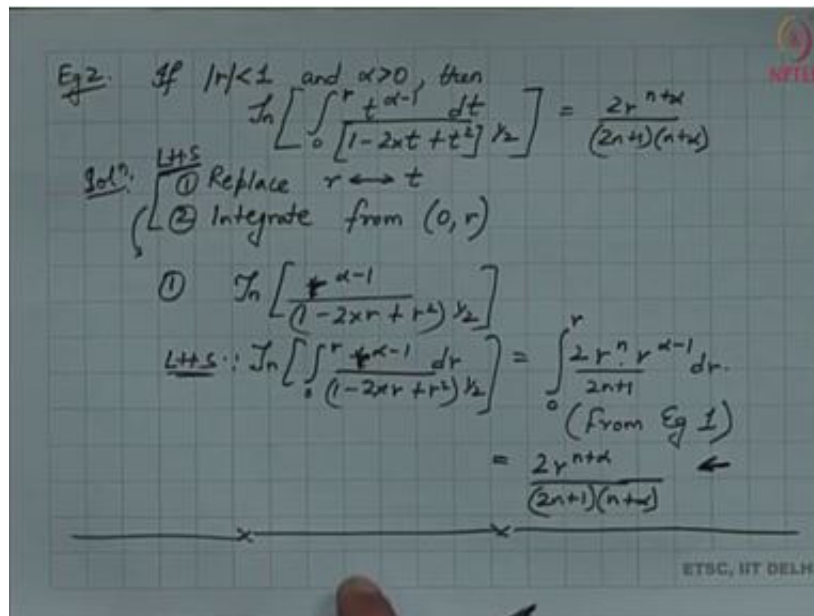 NPTEL
Eg 2. If |r|<1 and α>0, then
𝒯n[∫₀^r t^(α-1) dt / [1-2xt+t²]^(1/2)] = 2r^(n+α) / (2n+1)(n+α)
Solⁿ: LHS
① Replace r ⟷ t
② Integrate from (0, r)
① 𝒯n[r^(α-1) / (1-2xr+r²)^(1/2)]
LHS: 𝒯n[∫₀^r r^(α-1) dr / (1-2xr+r²)^(1/2)] = ∫₀^r 2r^n · r^(α-1) / 2n+1 dr.
(From Eg 1)
= 2r^(n+α) / (2n+1)(n+α) ←
ETSC, IIT DELH